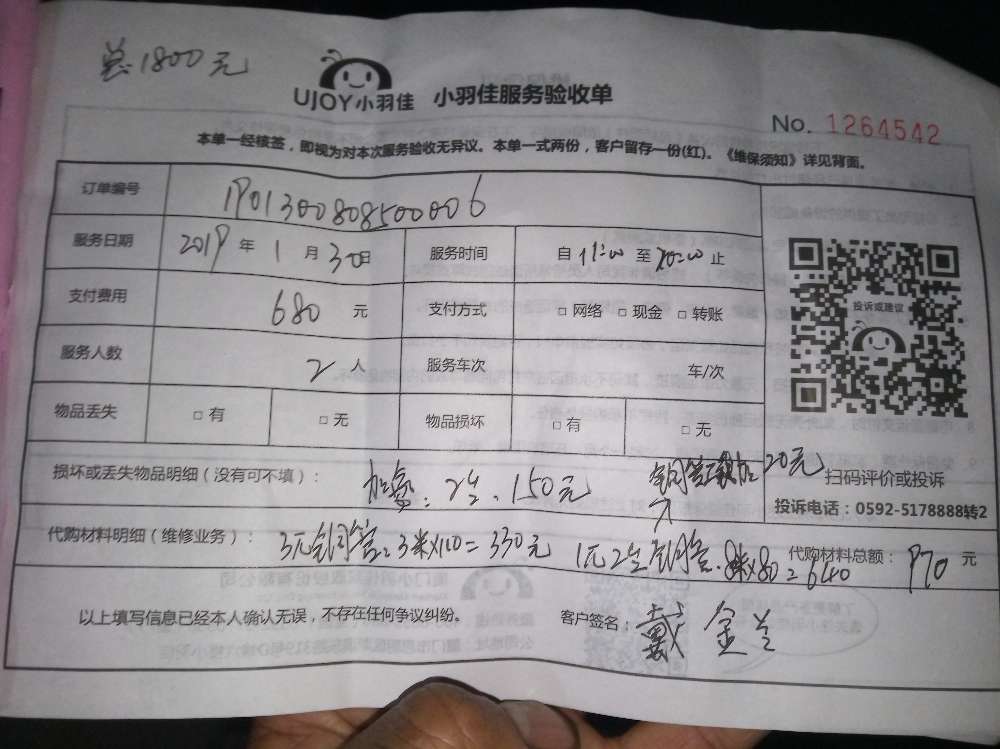 总1800元
UJOY小羽佳 小羽佳服务验收单
No. 1264542
本单一经核签，即视为对本次服务验收无异议。本单一式两份，客户留存一份(红)。《维保须知》详见背面。
订单编号 19013000808500006
服务日期 2019 年 1 月 30日 服务时间 自 11:00 至 20:00 止
支付费用 680 元 支付方式 □ 网络 □ 现金 □ 转账
投诉或建议
服务人数 2 人 服务车次 车/次
物品丢失 □ 有 □ 无 物品损坏 □ 有 □ 无
损坏或丢失物品明细（没有可不填）： 2台.150元 20元
扫码评价或投诉
投诉电话：0592-5178888转2
代购材料明细（维修业务）： 3匹铜管.3米×110=330元 1匹2台铜管.8米×80=640 代购材料总额： 970 元
以上填写信息已经本人确认无误，不存在任何争议纠纷。 客户签名： 戴金兰